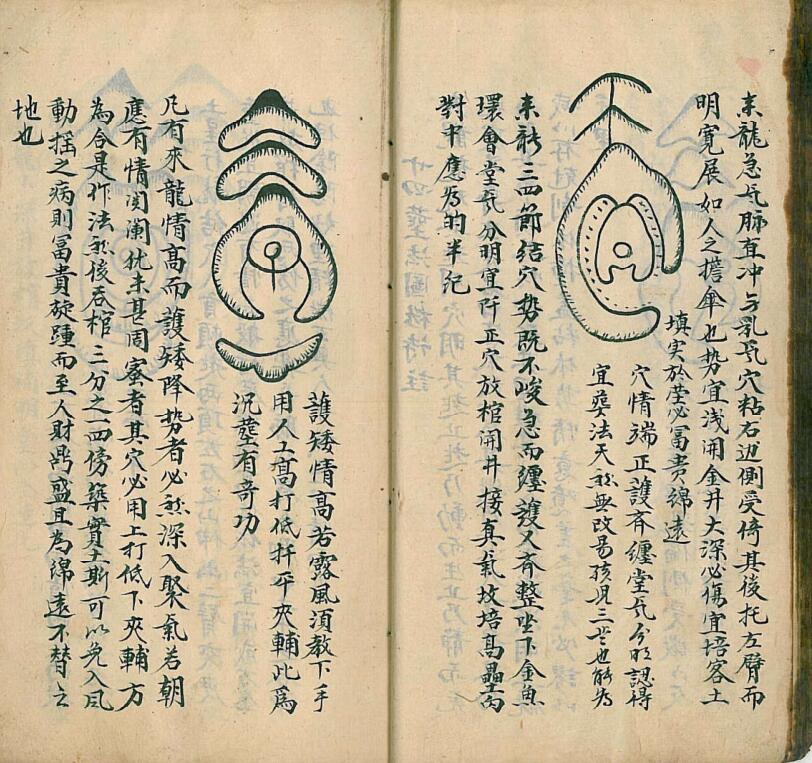 来龍急炁脉直冲与乳炁穴粘右边側受倚其後托左臂而
明寬展如人之擔傘也势宜浅開金井大深必傷宜培客土
填实於莹必冨贵綿遠
穴情端正護斉纏堂炁分明認得
宜塟法天然無改易孩児三岁也能為
来龍三四節结穴势既不峻急而纏護又斉整坐下金魚
環會堂炁分明宜阡正穴放棺開井接真氣坟培高壘向
對中應为的半纪
護矮情高若露風須教下手
用人工高打低扦平夾輔此爲
沉塟有竒功
凡有來龍情高而護矮降势者必然深入聚氣若朝
應有情関闌状未甚周宻者其穴必用上打低下夾輔方
為合是作法然後吞棺三分之一四傍築實土斯可以免入風
動揺之病則冨貴旋踵而至人财鼎盛且為綿遠不替之
地也